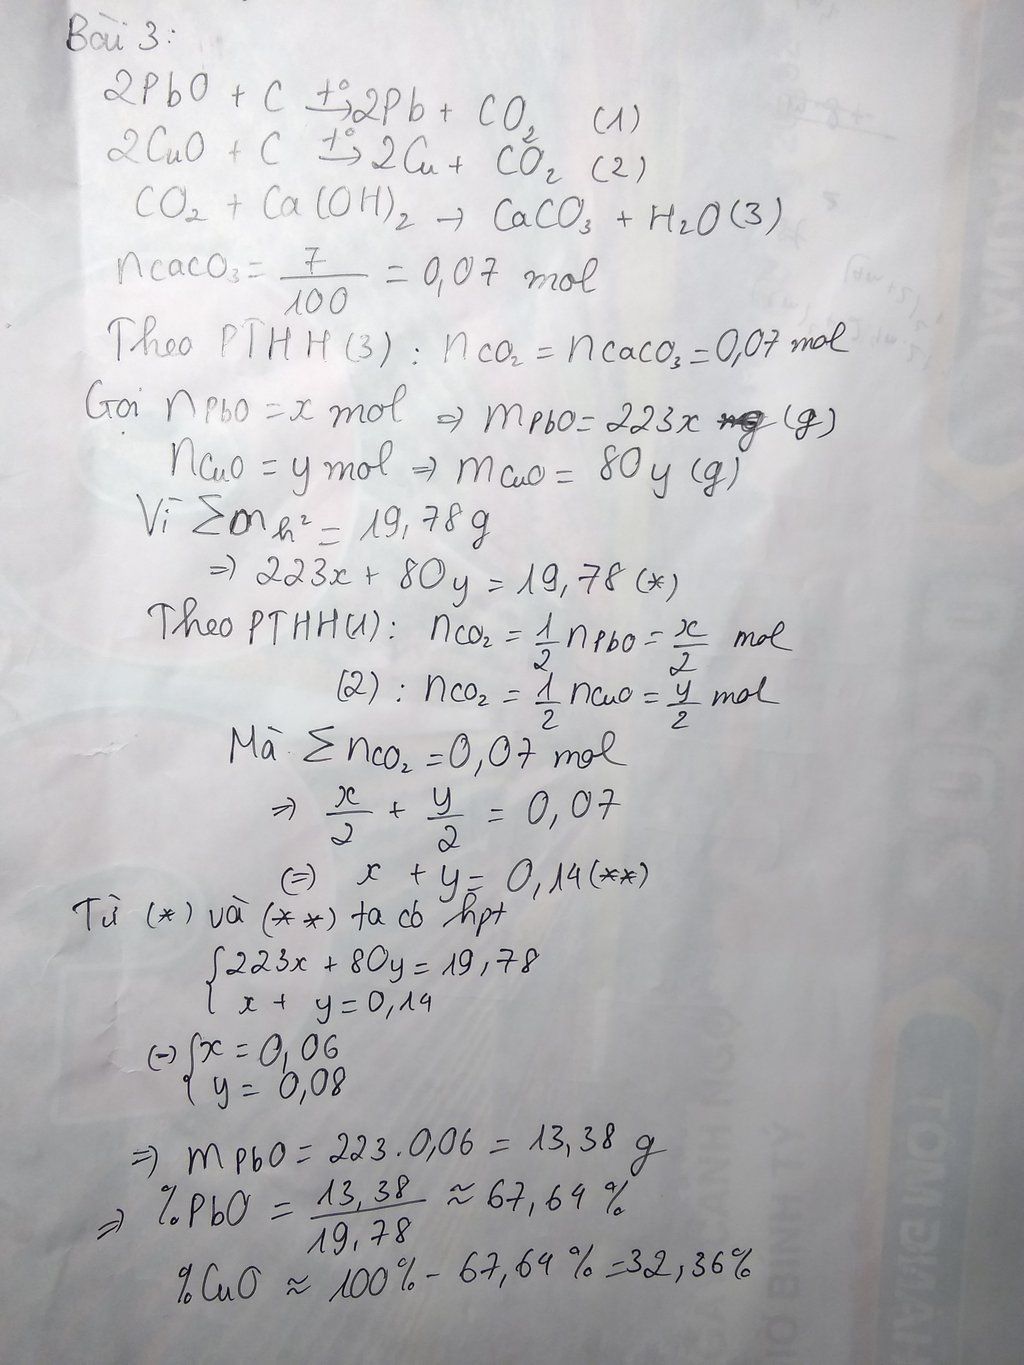 Bài 3:
2PbO + C t°→ 2Pb + CO₂ (1)
2CuO + C t°→ 2Cu + CO₂ (2)
CO₂ + Ca(OH)₂ → CaCO₃ + H₂O (3)
nCaCO₃ = 7/100 = 0,07 mol
Theo PTHH (3) : nCO₂ = nCaCO₃ = 0,07 mol
Gọi nPbO = x mol ⇒ mPbO = 223x (g)
nCuO = y mol ⇒ mCuO = 80y (g)
Vì Σm h² = 19,78g
⇒ 223x + 80y = 19,78 (*)
Theo PTHH(1): nCO₂ = 1/2 nPbO = x/2 mol
(2) : nCO₂ = 1/2 nCuO = y/2 mol
Mà Σ nCO₂ = 0,07 mol
⇒ x/2 + y/2 = 0,07
(=) x + y = 0,14 (**)
Từ (*) và (**) ta có hpt
{223x + 80y = 19,78
{x + y = 0,14
(=) {x = 0,06
{y = 0,08
⇒ mPbO = 223.0,06 = 13,38 g
⇒ %PbO = 13,38/19,78 ≈ 67,64 %
%CuO ≈ 100% - 67,64 % = 32,36%